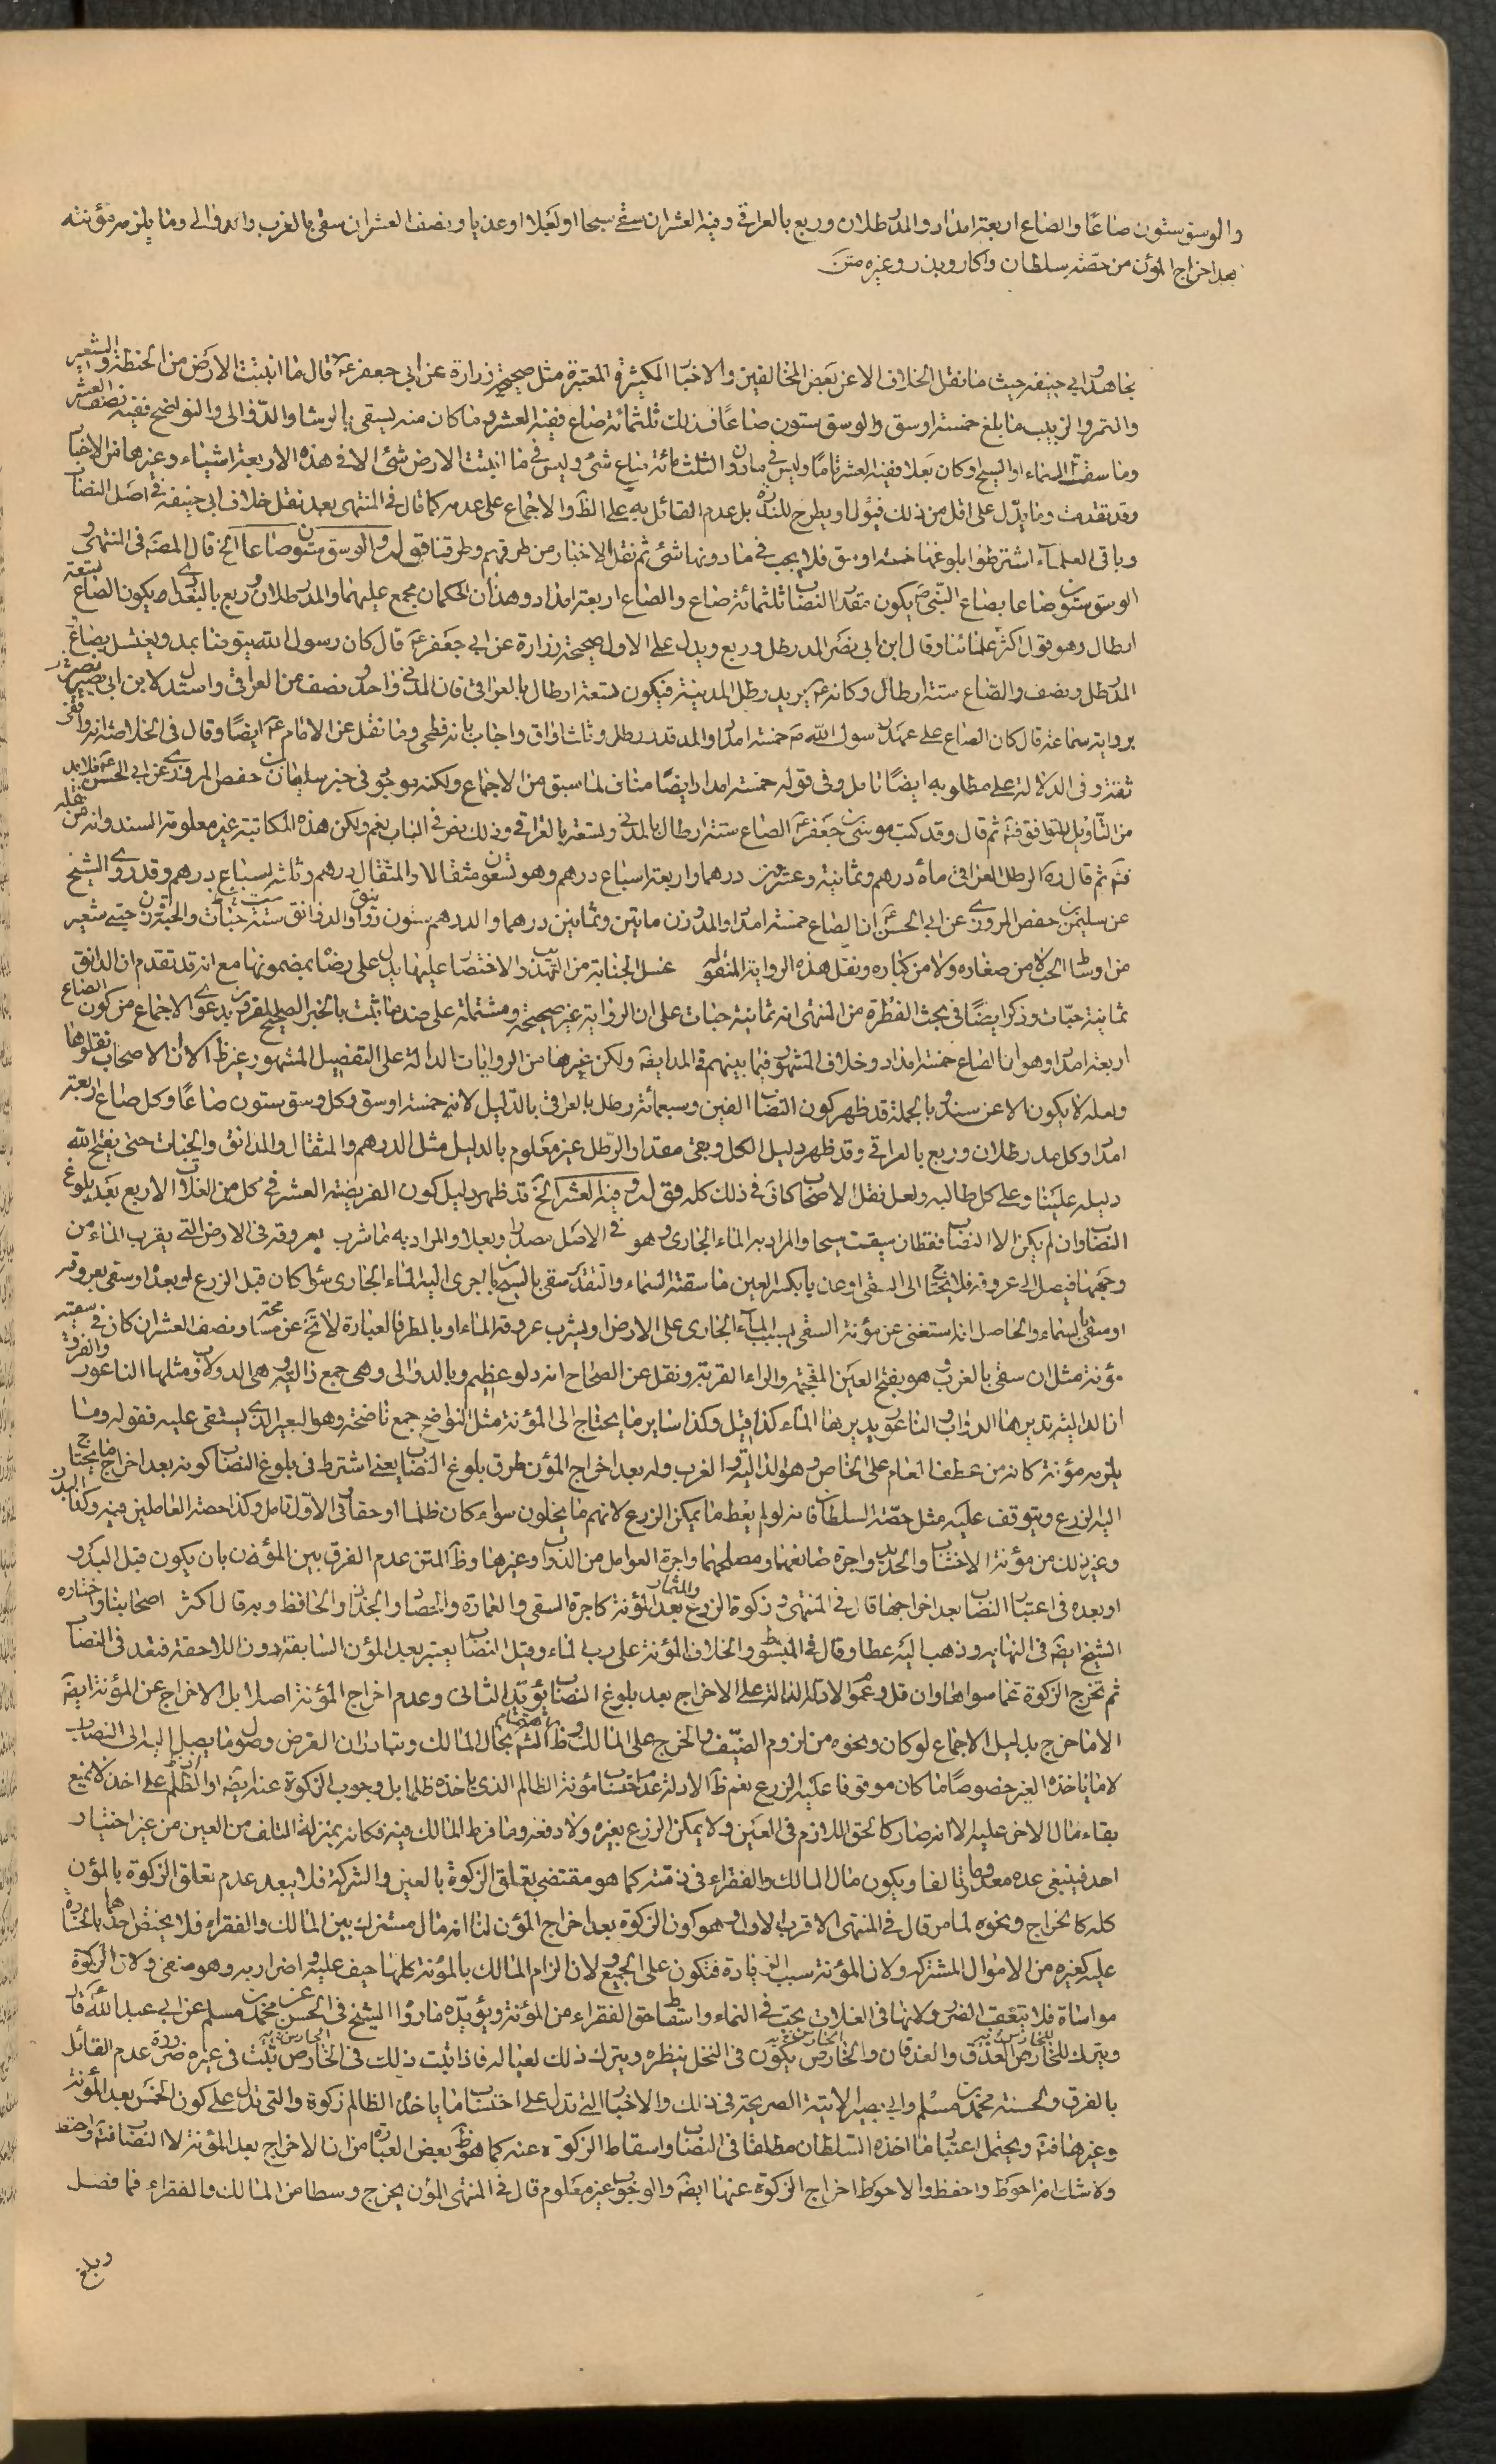 والوسق ستون صاعًا والصاع اربعة امداد والمد رطلان وربع بالعراقي وفيه العشر ان سقي سيحا او بعلا او عذيا ونصف العشر ان سقى بالغرب والدوالى وما يلزمه مؤنته
بعد اخراج المؤن من حصّة سلطان واكار وبذر وغيره متن
مجاهد وابي حنيفه حيث ما نقل الخلاف الا عن بعض المخالفين والاخبار الكثيرة المعتبرة مثل صحيحة زرارة عن ابى جعفر ع قال ما انبتت الارض من الحنطة والشعير
والتمر والزبيب ما بلغ خمسة اوسق والوسق ستون صاعًا فذلك ثلثمائة صاع ففيه العشر وما كان منه يسقى بالرشا والدوالى والنواضح ففيه نصف العشر
وما سقت السماء او السيح او كان بعلا ففيه العشر تامًا وليس فى ما دون الثلثمائة صاع شئ وليس فى ما انبتت الارض شئ الا فى هذه الاربعة اشياء وغيرها من الاخبار
وقد تقدمت وما يدل على اقل من ذلك فيؤل او يطرح للندرة بل عدم القائل به على الظ والاجماع على عدمه كما قال فى المنتهى بعد نقل خلاف ابى حنيفه فى اصل النصاب
وباقى العلماء اشترطوا بلوغها خمسة اوسق فلا يجب فى ما دونها شئ ثم نقل الاخبار من طرقهم وطرقنا قوله والوسق ستون صاعا الخ قال المصنف فى المنتهى
الوسق ستون صاعا بصاع النبى ص يكون مقدار النصاب ثلثمائة صاع والصاع اربعة امداد وهذان الحكمان مجمع عليهما والمد رطلان وربع بالبغدادى يكون الصاع تسعة
ارطال وهو قول اكثر علمائنا وقال ابن ابى نصر المد رطل وربع ويدل على الاول صحيحة زرارة عن ابى جعفر ع قال كان رسول الله يتوضأ بمد ويغتسل بصاع
المد رطل ونصف والصاع ستة ارطال وكانه ع يريد رطل المدينة فيكون تسعة ارطال بالعراقى فان المدنى واحد ونصف من العراقى واستدل لابن ابى نصر
برواية سماعة قال كان الصاع على عهد رسول الله ص خمسة امداد والمد قدر رطل وثلث اواق واجاب بانه فطحى وما نقل عن الامام ع ايضًا وقال فى الخلاصة انه واقفى
ثقة وفى الدلالة على مطلوبه ايضًا تامل وفى قوله خمسة امداد ايضًا مناف لما سبق من الاجماع ولكنه موجود فى خبر سليمان بن حفص المروزى عن ابى الحسن ع فلا بد
من التأويل ثم قال وقد كتب موسى بن جعفر ع الصاع ستة ارطال بالمدنى وتسعة بالعراقى وذلك نص فى الباب نعم ولكن هذه المكاتبة غير معلومة السند وانه من نقله
فتم ثم قال ره الرطل العراقى مأة درهم وثمانية وعشرون درهما واربعة اسباع درهم وهو تسعون مثقالا والمثقال درهم وثلثه اسباع درهم وقد روى الشيخ
عن سليمن بن حفص المروزى عن ابى الحسن ع ان الصاع خمسة امداد والمد وزن مايتين وثمانين درهما والدرهم ستون دوانيق والدانق ستة حبات والحبة وزن حبتى شعير
من اوساط الحب لا من صغاره ولا من كباره ونقل هذه الرواية المنقوله غسل الجنابة من التهذيب والاختصار عليها يدل على رضاه بمضمونها مع انه قد تقدم ان الدانق
ثمانية حبّات وذكر ايضًا فى بحث الفطرة من المنتهى انه ثمانية حبات على ان الرواية غير صحيحة ومشتملة على ضد ما ثبت بالخبر الصحيح المقرون بدعوى الاجماع من كون الصاع
اربعة امداد وهو ان الصاع خمسة امداد وخلاف المشهور فيما بينهم فى الدانق ولكن غيرها من الروايات الدالة على التفصيل المشهور غيرظ الا ان الاصحاب نقلوها
ولعله لا يكون الا عن سند وبالجملة قد ظهر كون النصاب الفين وسبعمائة رطل بالعراقى بالدليل لانه خمسة اوسق وكل وسق ستون صاعًا وكل صاع اربعة
امداد وكل مد رطلان وربع بالعراقى وقد ظهر دليل الكل وبقى مقدار الرطل غير معلوم بالدليل مثل الدرهم والمثقال والدانق والحبات حتى يفتح الله
دليله علينا وعلى كل طالبه ولعل نقل الاصحاب كاف فى ذلك كله قوله وفيه العشر الخ قد ظهر دليل كون الفريضة العشر فى كل من الغلات الاربع بعد بلوغ
النصاب وان لم يكن الا النصاب فقط ان سقت سيحا والمراد به الماء الجارى وهو فى الاصل مصدر او بعلا والمراد به ما شرب بعروقه فى الارض التى يقرب الماء من
وجهها فيصل الى عروقه فلا يحتاج الى السقى او عذيا بكسر العين ما سقته السماء والتقدير سقى بالسيح بان جرى اليه الماء الجارى سواء كان قبل الزرع او بعده او سقى بعروقه
او سقى بالسماء والحاصل انه استغنى عن مؤنة السقى بسبب الماء الجارى على الارض او يشرب عروقه الماء او بالمطر فالعبارة لا تخ عن مسامحة ونصف العشر ان كان فى سقيه
مؤنة مثل ان سقى بالغرب وهو بفتح الغين المعجمة والراء القريبة ونقل عن الصحاح انه دلو عظيم وبالدوالى وهى جمع دالية وهى الدولاب ومثلها الناعورة والفرق
ان الدالية تديرها الدواب والناعورة يديرها الماء كذا قيل وكذا ساير ما يحتاج الى المؤنة مثل النواضح جمع ناضحة وهو البعير الذى يستقى عليه فقوله وما
يلزمه مؤنة كانه من عطف العام على الخاص وهو الدالية والغرب وله بعد اخراج المؤن ظرف بلوغ النصاب يعنى اشترط فى بلوغ النصاب كونه بعد اخراج ما يحتاج
اليه الزرع ويتوقف عليه مثل حصة السلطان فانه لو لم يعط ما يمكن الزرع لانهم ما يخلون سواء كان ظلما او حقا فى الاول تامل وكذا حصة العاملين فيه وكذا البذر
وغير ذلك من مؤنة الاخشاب والحديد واجرة صانعها ومصلحها واجرة العوامل من الدواب وغيرها وظ المتن عدم الفرق بين المؤن بان يكون قبل البدو
او بعده فى اعتبار النصاب بعد اخراجها قال فى المنتهى وزكوة الزرع والثمار بعد المؤنة كاجرة السقى والعمارة والحصاد والجذاذ والحافظ وبه قال اكثر اصحابنا واختاره
الشيخ ايضَ فى النهايه وذهب اليه عطا وقال فى المبسوط والخلاف المؤنة على رب الماء وقيل النصاب يعتبر بعد المؤن السابقة دون اللاحقة فتعد فى النصاب
ثم تخرج الزكوة عما سواها وان قل وعموم الادلة الدالة على الاخراج بعد بلوغ النصاب يؤيد الثانى وعدم اخراج المؤنة اصلا بل الاخراج عن المؤنة ايضَ
الا ما خرج بدليل الاجماع لو كان ونحوه من لزوم الضيق والحرج على المالك وظ الشرع بحال المالك وتبادر ان الغرض وصول ما يصل اليه الى النصاب
لا ما ياخذه الغير خصوصًا ما كان موقوفا عليه الزرع نعم ظ الادلة عدم احتساب مؤنة الظالم الذى ياخذه ظلما بل وجوب الزكوة عنه ايضَ اذ الظلم على اخذ لا يمنع
بقاء مال الاخر عليه الا انه صار كالحق اللازم فى العين ولا يمكن الزرع بغيره ولا دفعه وما فرط المالك فيه فكانه بمنزلة التلف من العين من غير اختيار
احد فينبغى عده معدوما وتالفا ويكون مال المالك والفقراء فى ذمته كما هو مقتضى تعلق الزكوة بالعين والشركة فلا يبعد عدم تعلق الزكوة بالمؤن
كله كالخراج ونحوه لما مر قال فى المنتهى الاقرب الاول وهو كون الزكوة بعد اخراج المؤن لنا انه مال مشترك بين المالك والفقراء فلا يختص احدهما بالخسارة
عليه كغيره من الاموال المشتركه ولان المؤنة سبب الزيادة فتكون على الجميع ولان الزام المالك بالمؤنة كلها حيف عليه واضرار به وهو منفى ولان الزكوة
مواساة فلا يتعقب الضرر ولانها فى الغلات يجب فى النماء واسقاط حق الفقراء من المؤنة ويؤيده ما رواه الشيخ فى الحسن عن محمد بن مسلم عن ابى عبد الله قال
ويترك للخارص العذق والعذقان والخارص يكون فى النخل ينظره ويترك ذلك لعياله فاذا ثبت ذلك فى الخارص ثبت فى غيره ضرورة عدم القائل
بالفرق ولحسنة محمد بن مسلم وابى بصير الاتية الصريحة فى ذلك والاخبار التى تدل على احتساب ما ياخذه الظالم زكوة والتى تدل على كون الخمس بعد المؤنة
وغيرها فتم ويحتمل اعتبار ما اخذه السلطان مطلقا فى النصاب واسقاط الزكوة عنه كما هو ظ بعض العبارة من ان الاخراج بعد المؤنة لا النصاب فتم واحتط
ولا شك انه احوط واحفظ والاحوط اخراج الزكوة عنها ايضَ والوجوب غير معلوم قال فى المنتهى المؤن يخرج وسطا من المالك والفقراء فما فضل
وبلغ